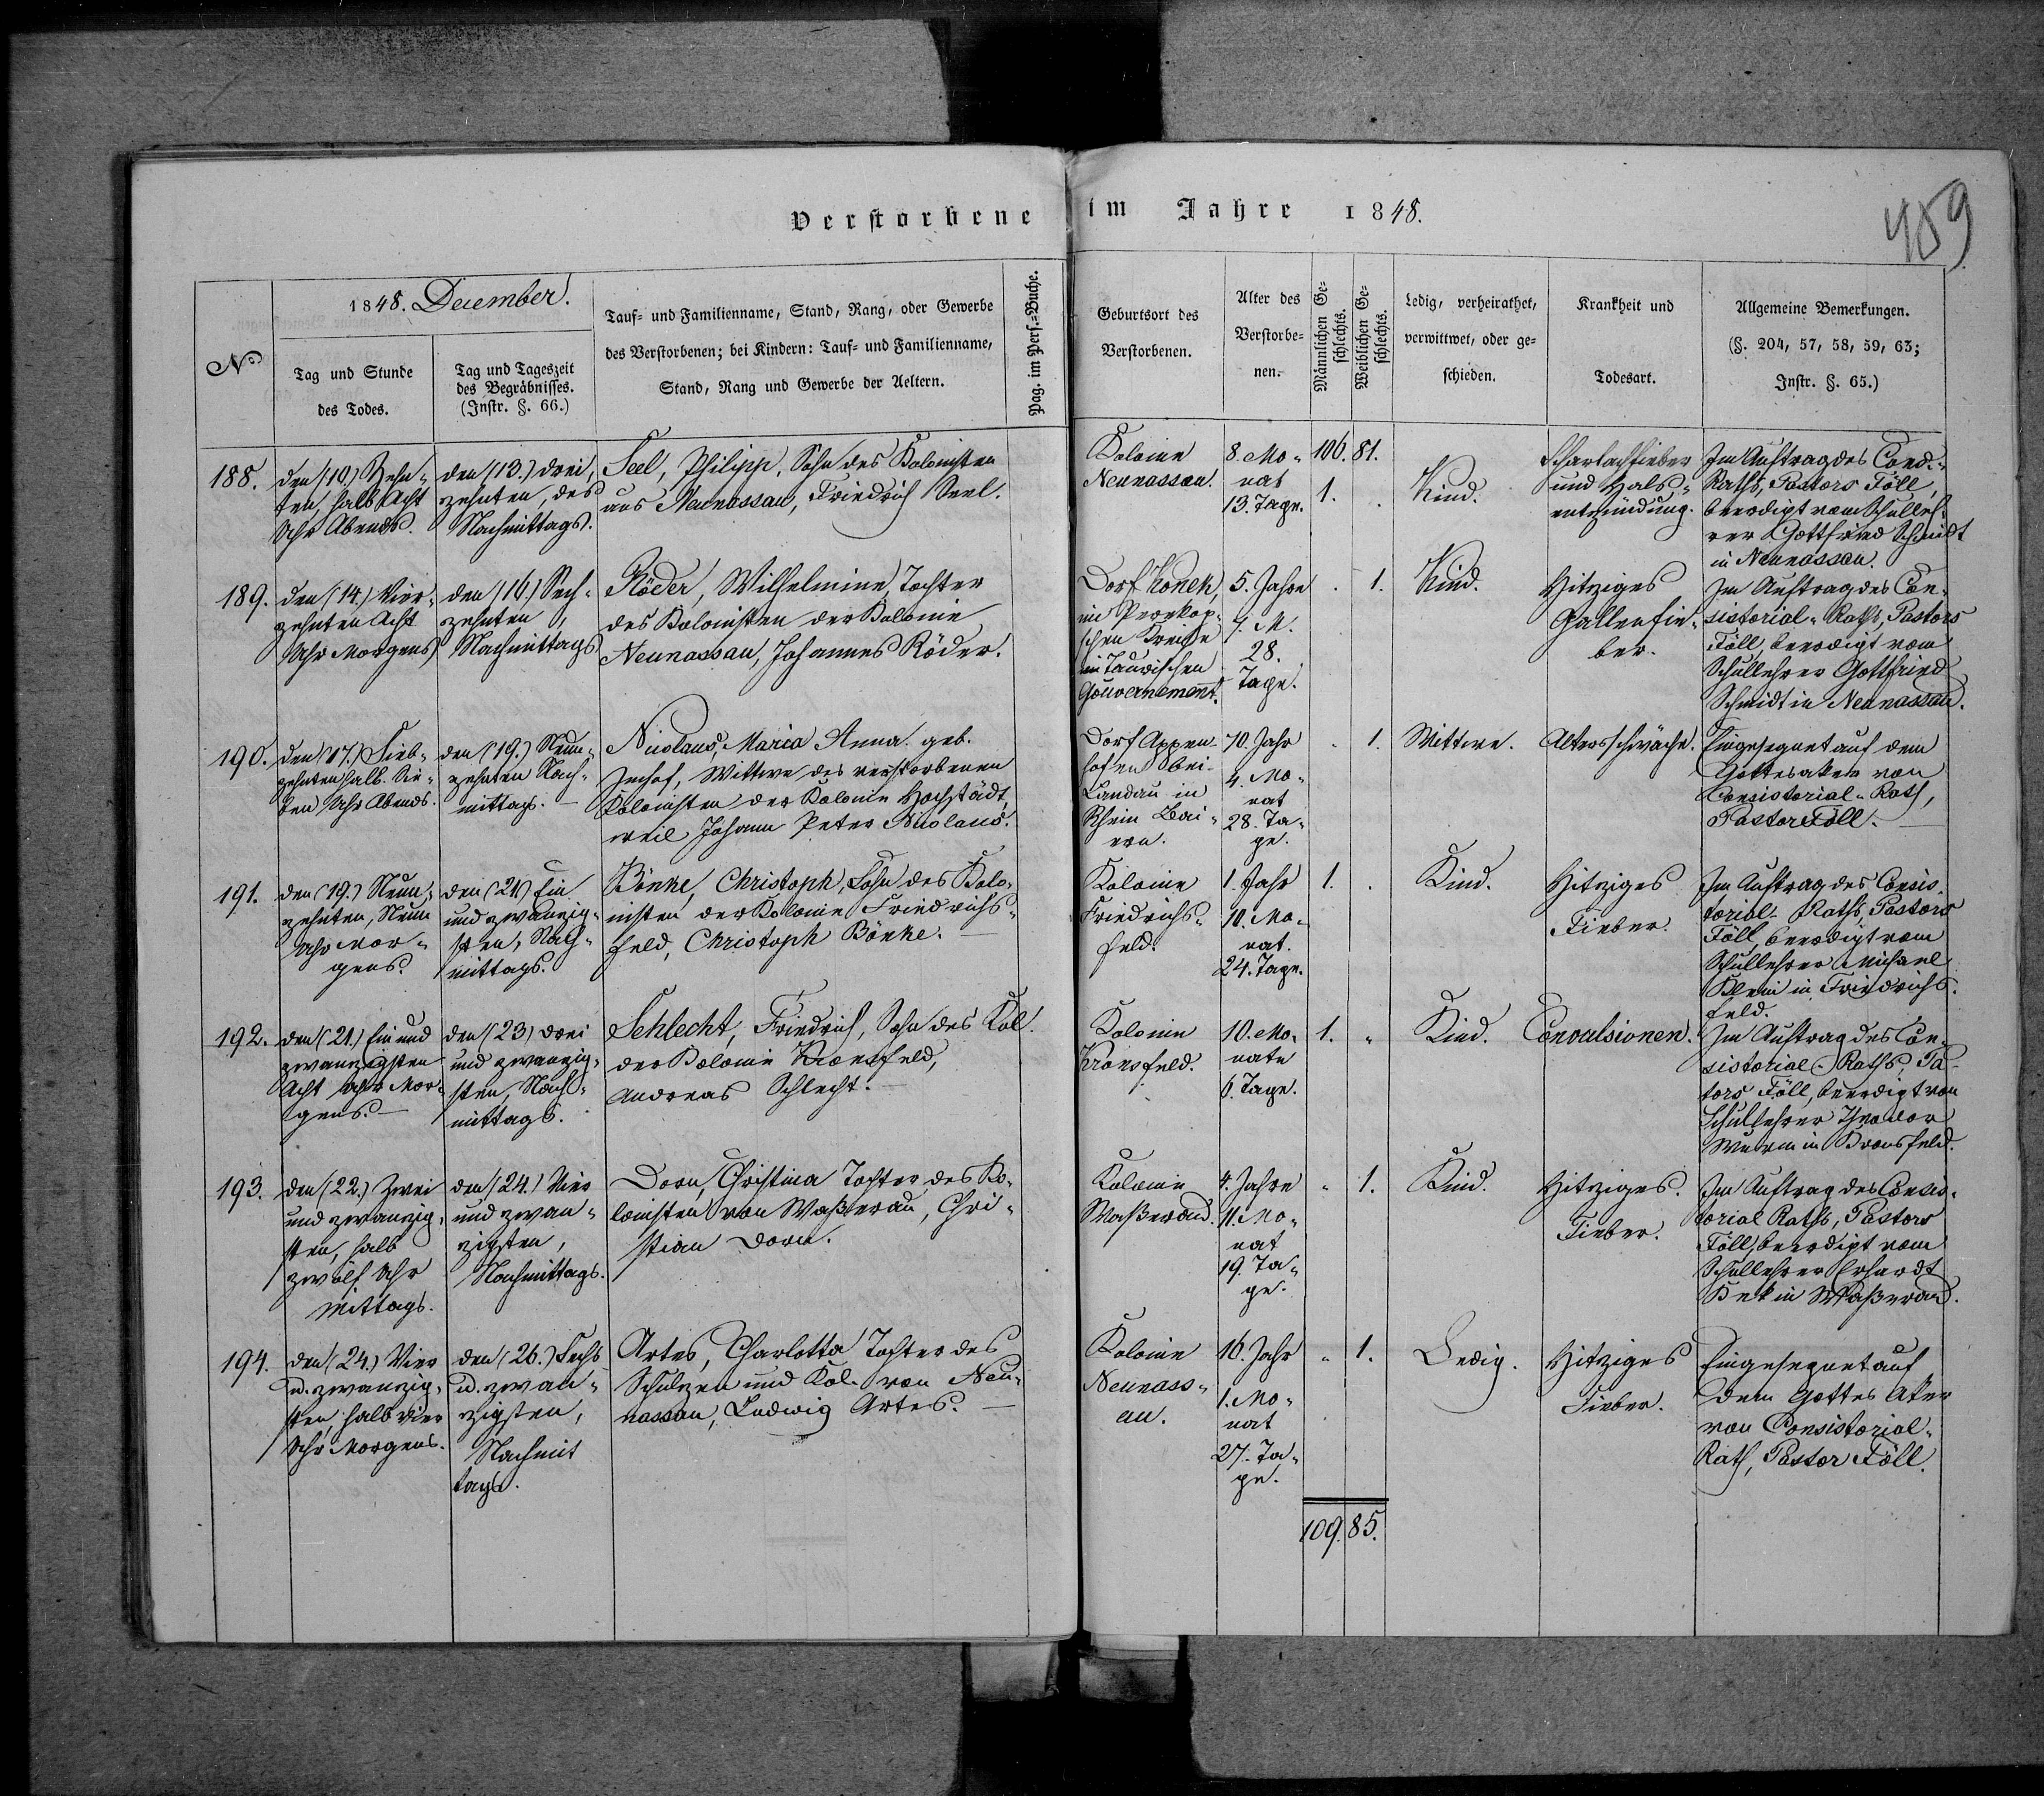 Verstorbene im Jahre 1848.
489
1848. December.
No
Tag und Stunde
des Todes.
Tag und Tageszeit
des Begräbnisses.
(Instr. §. 66.)
Tauf- und Familienname, Stand, Rang, oder Gewerbe
des Verstorbenen; bei Kindern: Tauf- und Familienname,
Stand, Rang und Gewerbe der Aeltern.
Pag. im Pers.-Buche.
Geburtsort des
Verstorbenen.
Alter des
Verstorbe-
nen.
Männlichen Ge-
schlechts.
Weiblichen Ge-
schlechts.
Ledig, verheirathet,
verwittwet, oder ge-
schieden.
Krankheit und
Todesart.
Allgemeine Bemerkungen.
(§. 204, 57, 58, 59, 63;
Instr. §. 65.)
188.
den (10.) Zehn-
ten, halb Acht
Uhr Abends.
den (13.) drei,
zehnten, des
Nachmittags.
Seel, Philipp, Sohn des Kolonisten
aus Neunassau, Friedrich Seel.
Kolonie
Neunassau.
8. Mo-
nat
13. Tage.
106. 81.
1.
Kind.
Scharlachfieber
und Hals-
entzündung.
Im Auftrag des Cons.
Raths, Pastors Föll,
beerdigt vom Schulleh-
rer Gottfried Schmidt
in Neunassau.
189.
den (14.) Vier-
zehnten Acht
Uhr Morgens
den (16.) Sech-
zehnten,
Nachmittags
Röder, Wilhelmine, Tochter
des Kolonisten der Kolonie
Neunassau, Johannes Röder.
Dorf Konek,
im Perekop-
schen Kreise
im Taurischen
Gouvernement.
5. Jahre
4. M.
28.
Tage.
1.
Kind.
Hitziges
Gallenfie-
ber.
Im Auftrag des Con-
sistorial-Raths, Pastors
Föll, beerdigt vom
Schullehrer Gottfried
Schmidt in Neunassau.
190.
den (17.) Sieb-
zehnten halb Sie-
ben Uhr Abends.
den (19.) Neun-
zehnten Nach-
mittags.
Nicolaus, Maria Anna. geb.
Imhof, Wittwe des verstorbenen
Kolonisten der Kolonie Hochstädt,
weil Johann Peter Nicolaus.
Dorf Appen-
hofen bei
Landau in
Rhein Bai-
ern.
70. Jahr
4. Mo-
nat
28. Ta-
ge.
1.
Wittwe.
Altersschwäche.
Eingesegnet auf dem
Gottesaker von
Consistorial-Rath,
Pastor Föll.
191.
den (19.) Neun-
zehnten, Neun
Uhr Mor-
gens.
den (21.) Ein
und zwanzig-
sten, Nach-
mittags.
Bönke, Christoph, Sohn des Kolo-
nisten der Kolonie Friedrichs-
feld, Christoph Bönke.
Kolonie
Friedrichs-
feld.
1. Jahr
10. Mo-
nat.
24. Tage.
1.
Kind.
Hitziges
Fieber.
Im Auftrag des Consis-
torial-Raths, Pastors
Föll, beerdigt vom
Schullehrer Michael
Klein in Friedrichs-
feld.
192.
den (21.) Ein und
zwanzigsten
Acht Uhr Mor-
gens.
den (23) drei
und zwanzig-
sten, Nach-
mittags.
Schlecht, Friedrich, Sohn des Kol.
der Kolonie Kronsfeld,
Andreas Schlecht.
Kolonie
Kronsfeld.
10. Mo-
nate
6. Tage.
1. "
Kind.
Convulsionen.
Im Auftrag des Con-
sistorial-Raths, Pa-
tors Föll, beerdigt von
Schullehrer Theodor
Wurm in Kronsfeld.
193.
den (22.) Zwei
und zwanzig-
sten, halb
zwölf Uhr
Mittags.
den (24.) Vier
und zwan-
zigsten,
Nachmittags.
Dorn, Christina Tochter des Ko-
lonisten von Waßerau, Chri-
stian Dorn.
Kolonie
Waßerau.
4. Jahre
11. Mo-
nat
19. Ta-
ge.
" 1.
Kind.
Hitziges.
Fieber.
Im Auftrag des Consis-
torial Raths, Pastors
Föll, beerdigt vom
Schullehrer Erhardt
Bek in Waßerau.
194.
den (24.) Vier
u. zwanzig-
sten, halb vier
Uhr Morgens.
den (26.) Sechs
u. zwan-
zigsten,
Nachmit
tags.
Artes, Charlotta Tochter des
Schulzen und Kol. von Neu-
nassau, Ludwig Artes.
Kolonie
Neunass-
au.
16. Jahr
1. Mo-
nat
27. Ta-
ge.
" 1.
Ledig.
Hitziges
Fieber.
Eingesegnet auf
dem Gottes Aker
von Consistorial-
Rath, Pastor Föll.
109. 85.